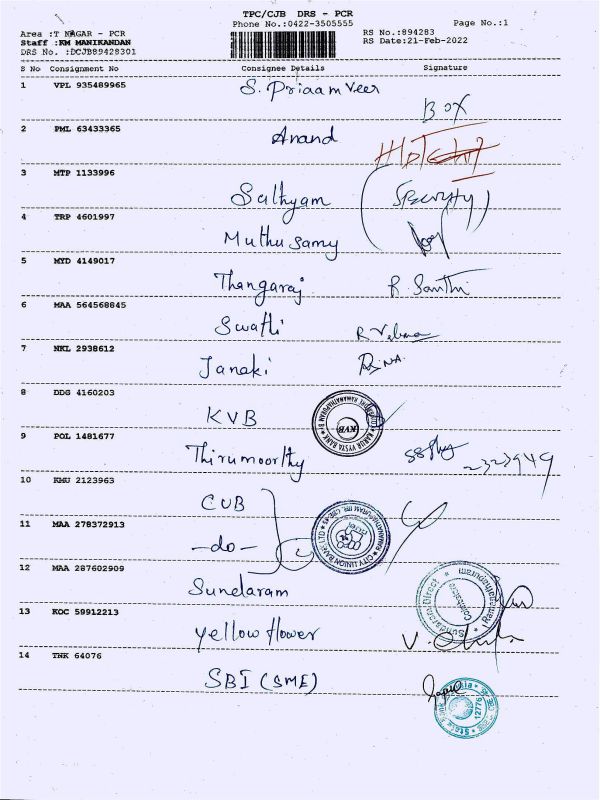 TPC/CJB DRS - PCR
Area :T NAGAR - PCR
Phone No.:0422-3505555
Page No.:1
Staff :KM MANIKANDAN
RS No.:894283
DRS No. :DCJB89428301
RS Date:21-Feb-2022
S No Consignment No Consignee Details Signature
1 VPL 935489965 S. Priaam Veer
BOX
2 PML 63433365 Anand
3 MTP 1133996 Sathyam
4 TRP 4601997 Muthu Samy
5 MYD 4149017 Thangaraj R. Santhi
6 MAA 564568845 Swathi
7 NKL 2938612 Janaki
8 DDG 4160203 KVB
9 POL 1481677 Thirumoorthy 2323949
10 KMU 2123963 CUB
11 MAA 278372913 -do-
12 MAA 287602909 Sundaram
13 KOC 59912213 Yellow flower
14 TNK 64076 SBI (SME)
KARUR VYSYA BANK
KVB
CITY UNION BANK
Sundaram Direct
Coimbatore
12776